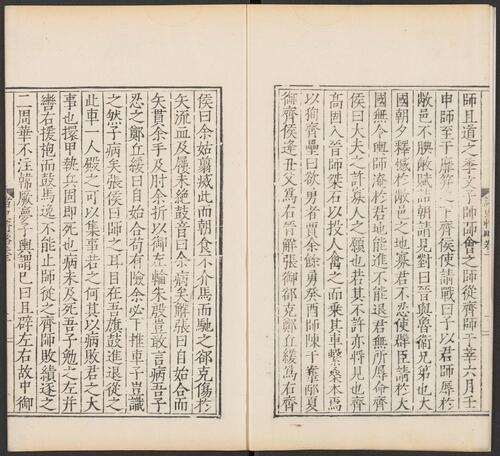 師且道之季文子帥師會之師從齊師于莘六月壬
申師至于靡笄之下齊侯使請戰曰子以君師辱於
敝邑不腆敝賦詰朝請見對曰晉與魯衞兄弟也大
國朝夕釋憾於敝邑之地寡君不忍使群臣請於大
國無令輿師淹於君地能進不能退君無所辱命齊
侯曰大夫之許寡人之願也若其不許亦將見也齊
高固入晉師桀石以投人禽之而乘其車繫桑本焉
以徇齊壘曰欲勇者賈余餘勇癸酉師陳于鞌邴夏
御齊侯逄丑父爲右晉解張御郤克鄭丘緩爲右齊
侯曰余姑翦滅此而朝食不介馬而馳之郤克傷於
矢流血及屨未絶鼓音曰余病矣解張曰自始合而
矢貫余手及肘余折以御左輪朱殷豈敢言病吾子
忍之鄭丘緩曰自始合苟有險余必下推車子豈識
之然子病矣張侯曰師之耳目在吾旗鼓進退從之
此車一人殿之可以集事若之何其以病敗君之大
事也擐甲執兵固即死也病未及死吾子勉之左并
轡右援枹而鼓馬逸不能止師從之齊師敗績逐之
三周華不注韓厥夢子輿謂已曰且辟左右故中御